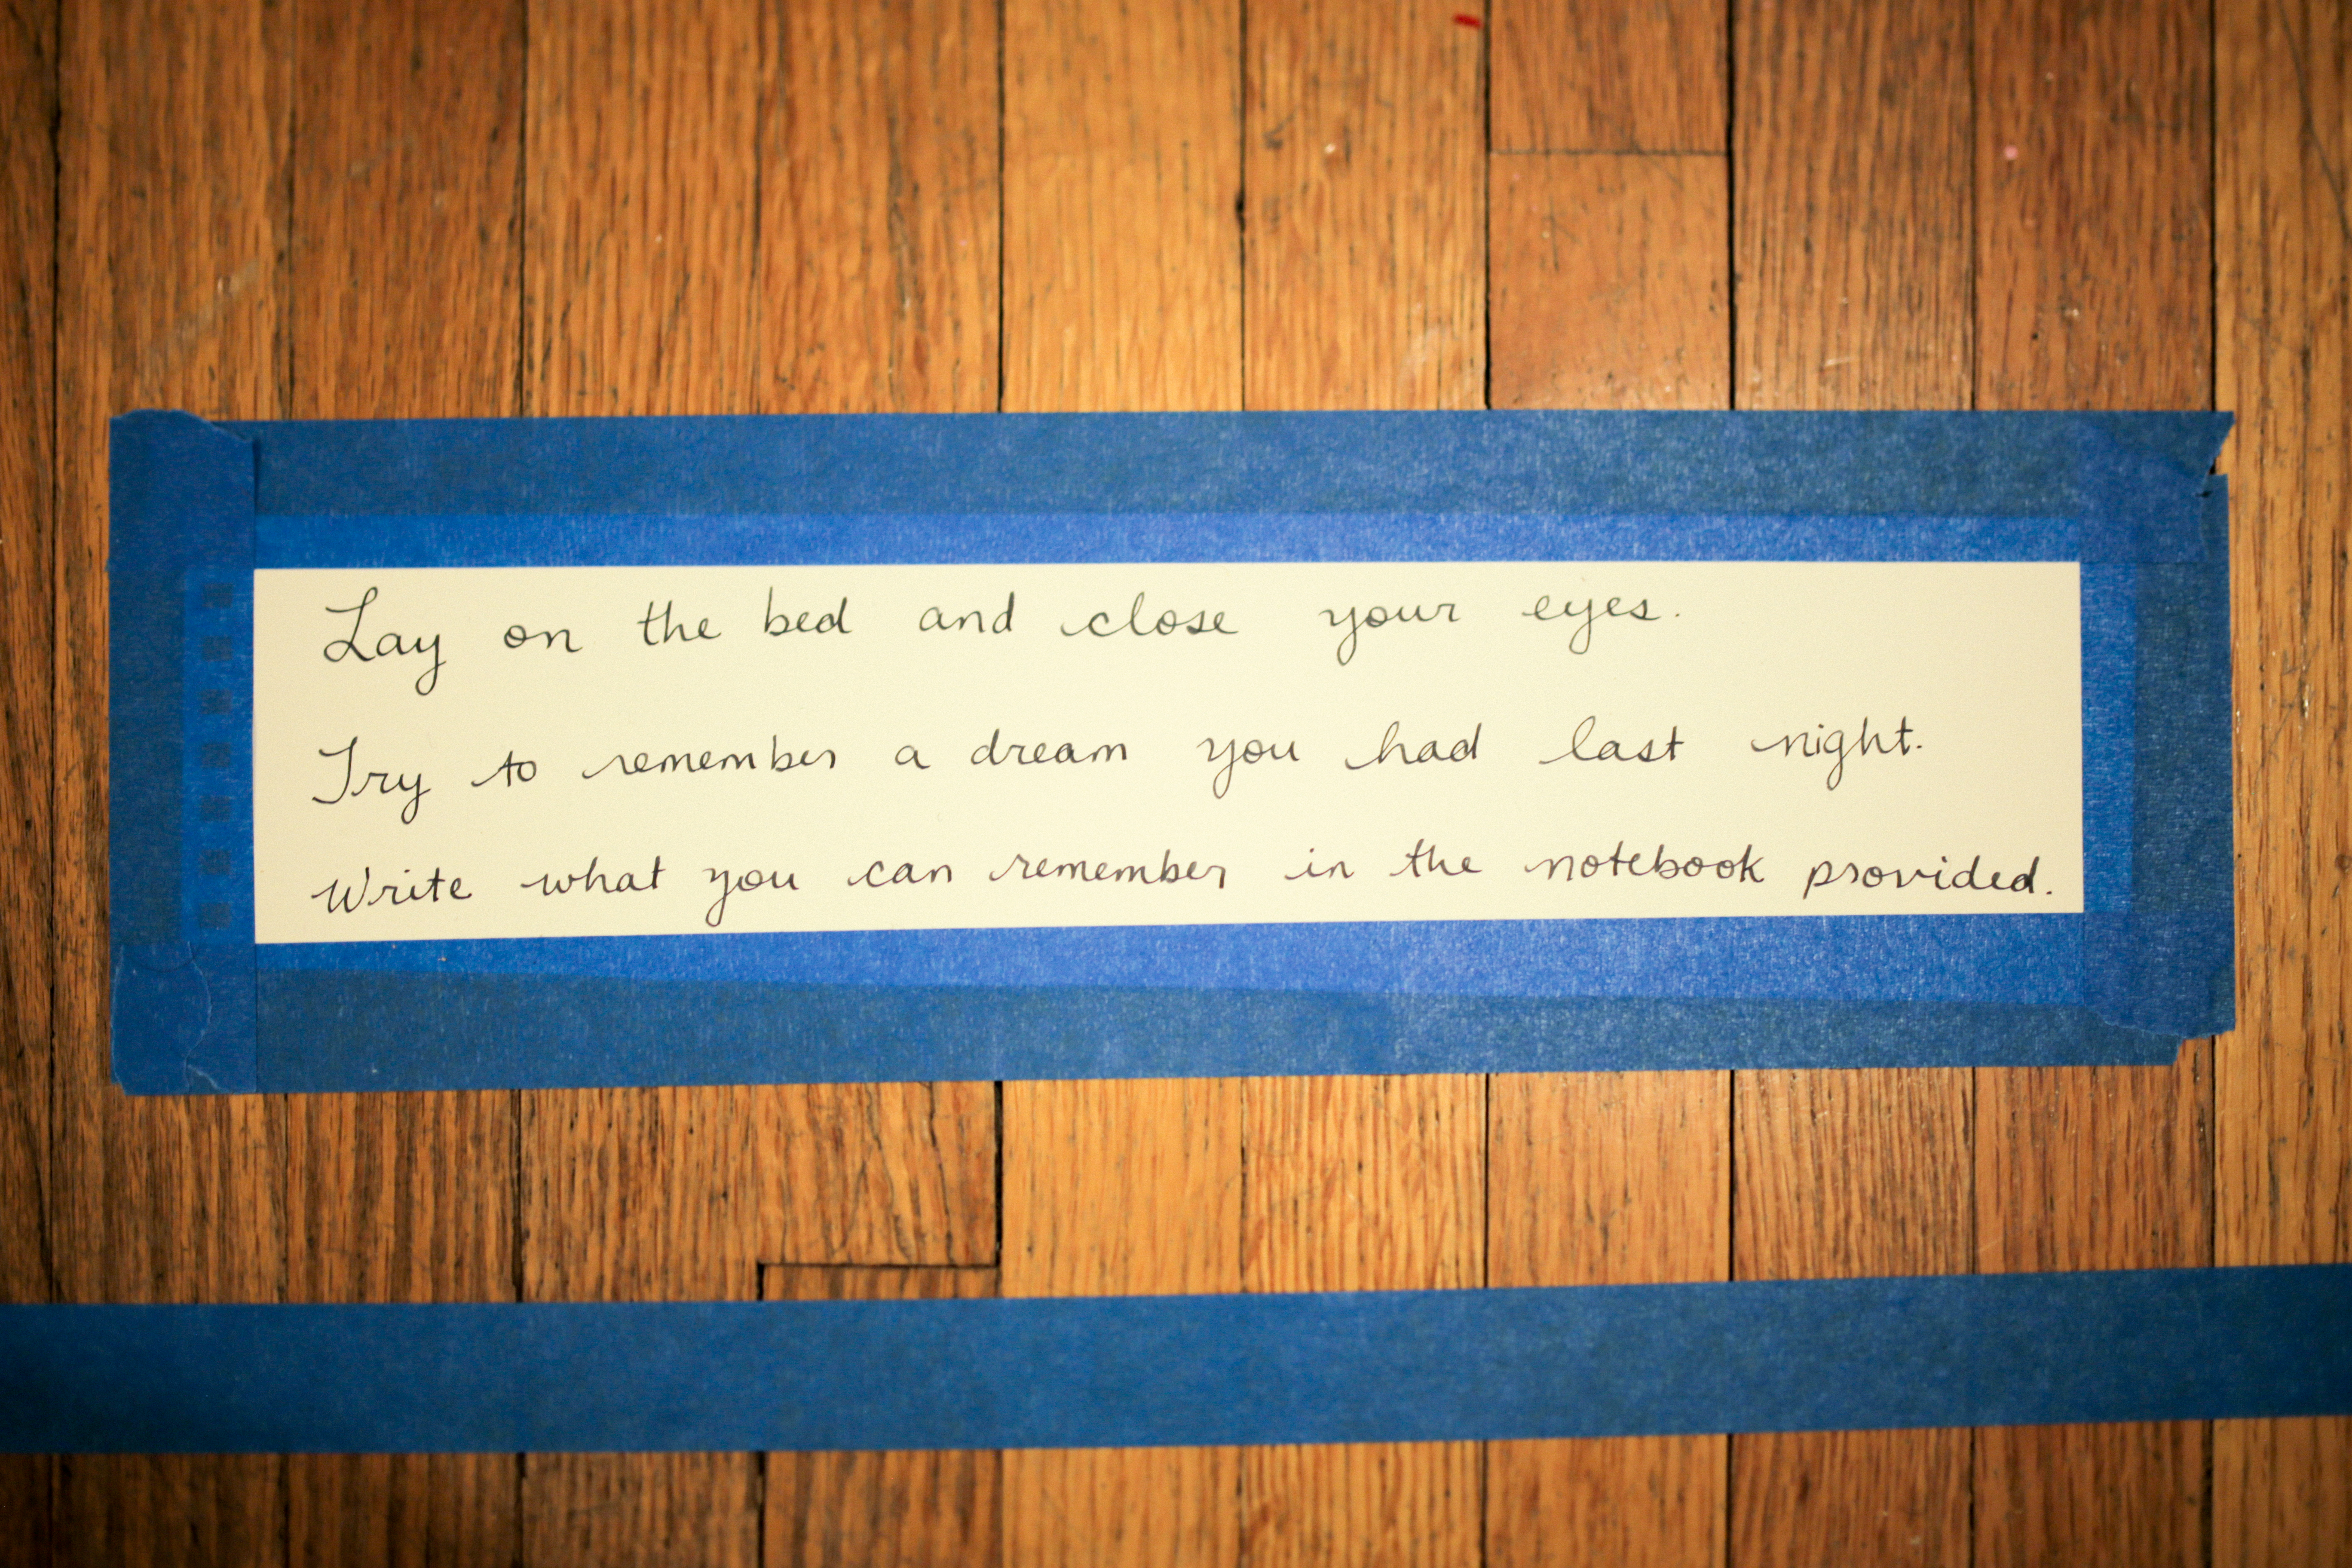 Lay on the bed and close your eyes.
Try to remember a dream you had last night.
Write what you can remember in the notebook provided.